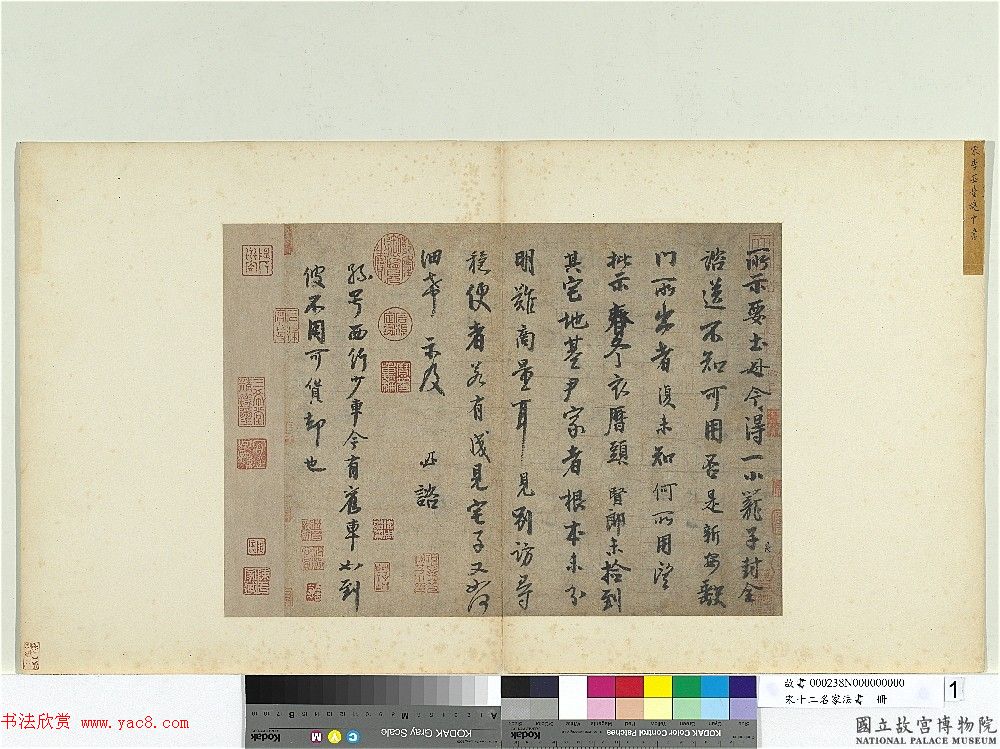 宋李西臺建中書
所示要土母今得一小籠子封全
諮送不知可用否是新安缺
門所出者復未知何所用望
批示春冬衣曆頭賢郎未拾到
其宅地基尹家者根本未分
明難商量耳見別訪尋
穩便者若有成見宅子又如何
細希示及 諮
孫号西行少車今有舊車如到
彼不用可貨却也
故書000238N000000000
宋十二名家法書 冊
1
KODAK Gray Scale
Kodak
KODAK Color Control Patches
書法欣赏 www.yac8.com
國立故宮博物院
NATIONAL PALACE MUSEUM